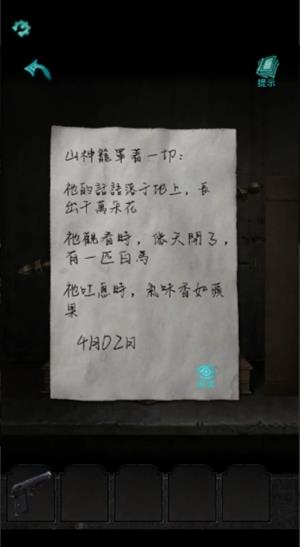 提示
山神籠罩着一切：
祂的話語落于地上，長
出千萬朵花
祂觀看時，像天開了，
有一匹白馬
祂吐息時，氣味香如蘋
果
4月02日